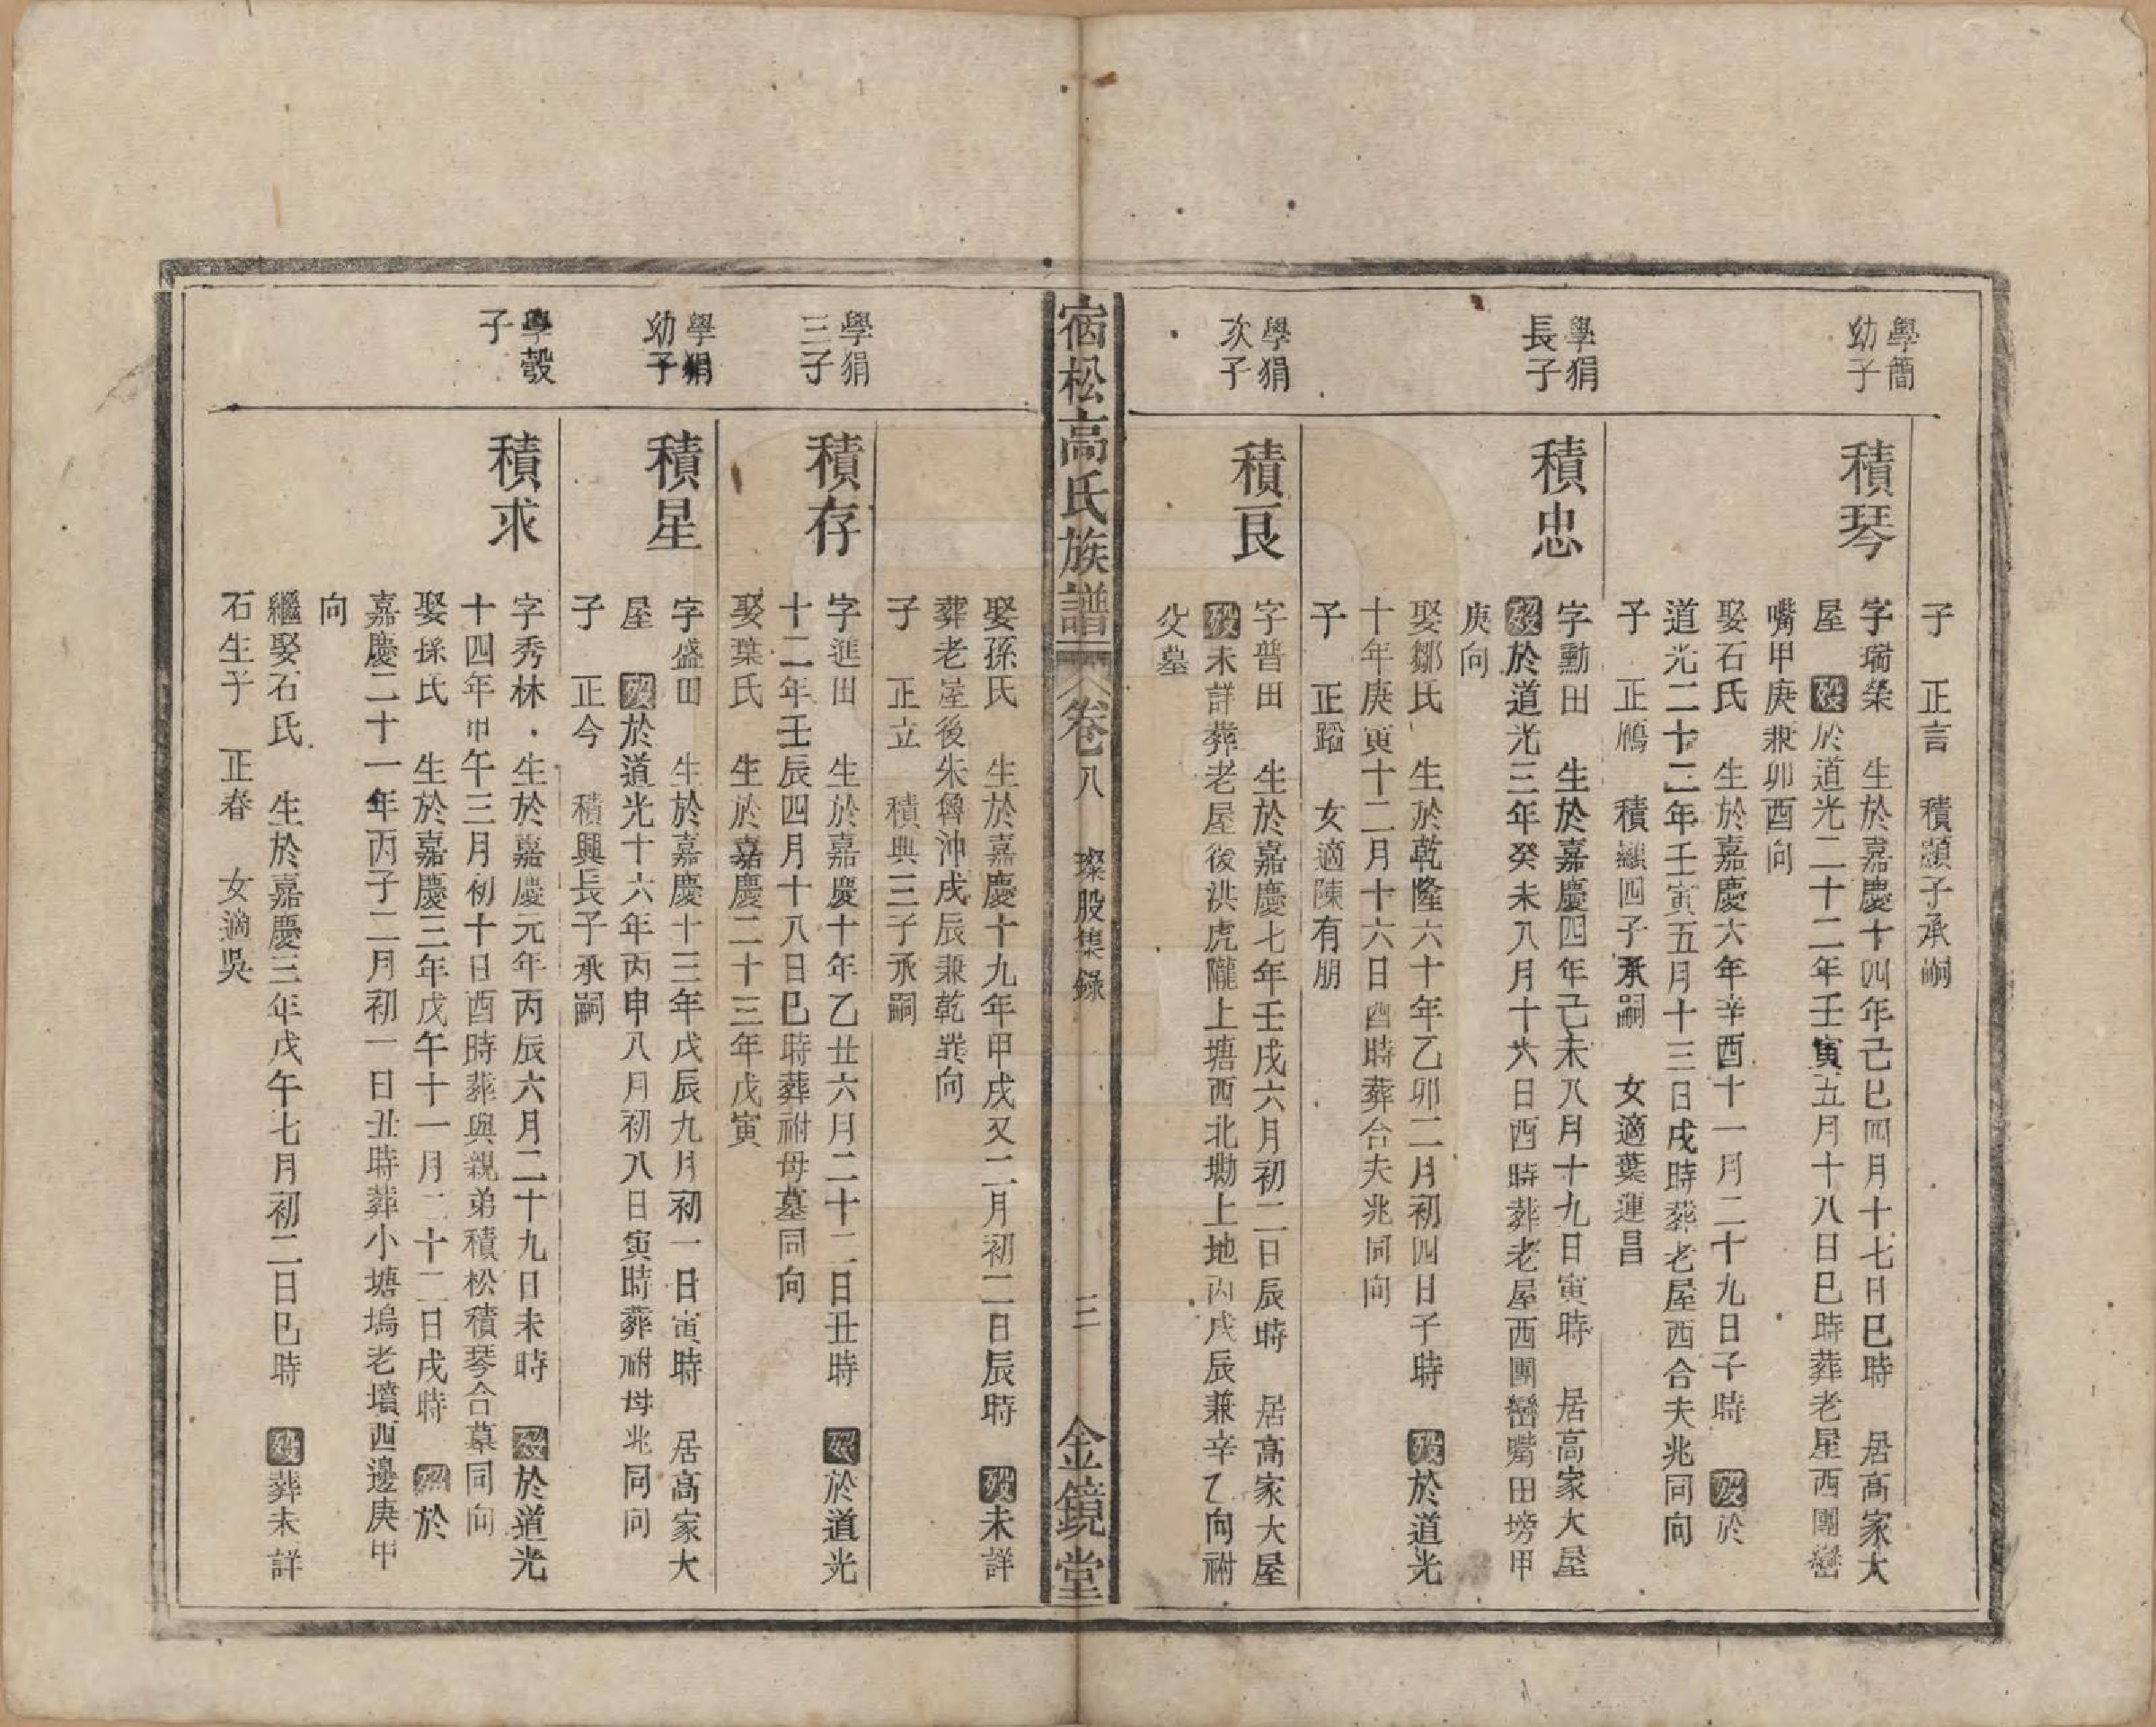 子　正言　積顥子承嗣
學簡
幼子
積琴
字瑞榮　生於嘉慶十四年己巳四月十七日巳時　居高家大
屋　歿於道光二十二年壬寅五月十八日巳時葬老屋西團巒
嘴甲庚兼卯酉向
娶石氏　生於嘉慶六年辛酉十一月二十九日子時　歿於
道光二十二年壬寅五月十三日戌時葬老屋西合夫兆同向
子　正鴈　積顯四子承嗣　女適葉運昌
學狷
長子
積忠
字勳田　生於嘉慶四年己未八月十九日寅時　居高家大屋
歿於道光三年癸未八月十六日酉時葬老屋西團巒嘴田塝甲
庚向
娶鄒氏　生於乾隆六十年乙卯二月初四日子時　歿於道光
十年庚寅十二月十六日酉時葬合夫兆同向
子　正蹈　女適陳有朋
學狷
次子
積艮
字普田　生於嘉慶七年壬戌六月初二日辰時　居高家大屋
歿未詳葬老屋後洪虎隴上塘西北塝上地丙戌辰兼辛乙向祔
父墓
宿松高氏族譜　卷八　璨股集錄　三　金鏡堂
娶孫氏　生於嘉慶十九年甲戌又二月初二日辰時　歿未詳
葬老屋後朱魯沖戌辰兼乾巽向
子　正立　積興三子承嗣
學狷
三子
積存
字進田　生於嘉慶十年乙丑六月二十二日丑時　歿於道光
十二年壬辰四月十八日巳時葬祔母墓同向
娶葉氏　生於嘉慶二十三年戊寅
學狷
幼子
積星
字盛田　生於嘉慶十三年戊辰九月初一日寅時　居高家大
屋　歿於道光十六年丙申八月初八日寅時葬祔母兆同向
子　正今　積興長子承嗣
學彀
子
積求
字秀林　生於嘉慶元年丙辰六月二十九日未時　歿於道光
十四年甲午三月初十日酉時葬與親弟積松積琴合墓同向
娶孫氏　生於嘉慶三年戊午十一月二十二日戌時　歿於
嘉慶二十一年丙子二月初一日丑時葬小塘塢老墳西邊庚甲
向
繼娶石氏　生於嘉慶三年戊午七月初二日巳時　歿葬未詳
石生子　正春　女適吳